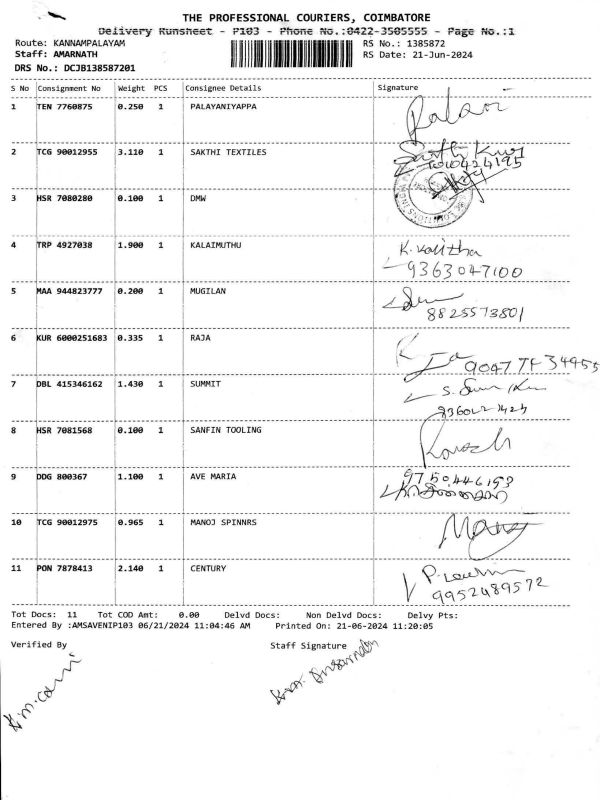 THE PROFESSIONAL COURIERS, COIMBATORE
Delivery Runsheet - P103 - Phone No.:0422-3505555 - Page No.:1
Route: KANNAMPALAYAM RS No.: 1385872
Staff: AMARNATH RS Date: 21-Jun-2024
DRS No.: DCJB138587201
S No Consignment No Weight PCS Consignee Details Signature
1 TEN 7760875 0.250 1 PALAYANIYAPPA Palani
2 TCG 90012955 3.110 1 SAKTHI TEXTILES
3 HSR 7080280 0.100 1 DMW
4 TRP 4927038 1.900 1 KALAIMUTHU K. Kalitha
9363047100
5 MAA 944823777 0.200 1 MUGILAN
8825573801
6 KUR 6000251683 0.335 1 RAJA
7 DBL 415346162 1.430 1 SUMMIT
8 HSR 7081568 0.100 1 SANFIN TOOLING
9 DDG 800367 1.100 1 AVE MARIA
10 TCG 90012975 0.965 1 MANOJ SPINNRS Manoj
11 PON 7878413 2.140 1 CENTURY
9952489572
Tot Docs: 11 Tot COD Amt: 0.00 Delvd Docs: Non Delvd Docs: Delvy Pts:
Entered By :AMSAVENIP103 06/21/2024 11:04:46 AM Printed On: 21-06-2024 11:20:05
Verified By Staff Signature